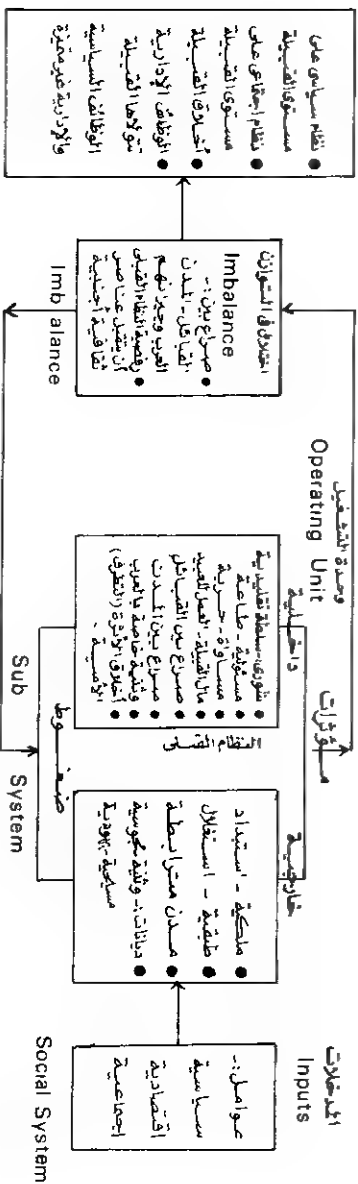 المدخلات
Inputs
عوامل :-
سياسية
اقتصادية
اجتماعية
Social System
مؤثرات
خارجية
● ملكية - استبداد
طبقية - استغلال
● مدن مترابطة
● ديانات :- وثنية مجوسية
مسيحية يهودية
داخلية
● شورى - سلطة تقليدية
مسئولية - طاعة
مساواة - حرية
● مال القبيلة - العمل للعبيد
● صراع بين القبائل
● صراع بين المدن
● وثنية خاصة بالعرب
● أخلاق الأثرة (التطرف)
● الأمية .
ضغوط
النظام القبلى
وحدة التشغيل
Operating Unit
Sub System
اختلال فى التوازن
Imbalance
● صراع بين :-
القبائل - المدن
العرب وجيرانهم
● رفض النظام القبلى
أن يتقبل عناصر
ثقافية أجنبية
Imbalance
● نظام سياسى على
مستوى القبيلة
● نظام اجتماعى على
مستوى القبيلة
● أخلاق القبيلة
● الوظائف الإدارية
تتولاها القبيلة
الوظائف السياسية
والإدارية غير متميزة